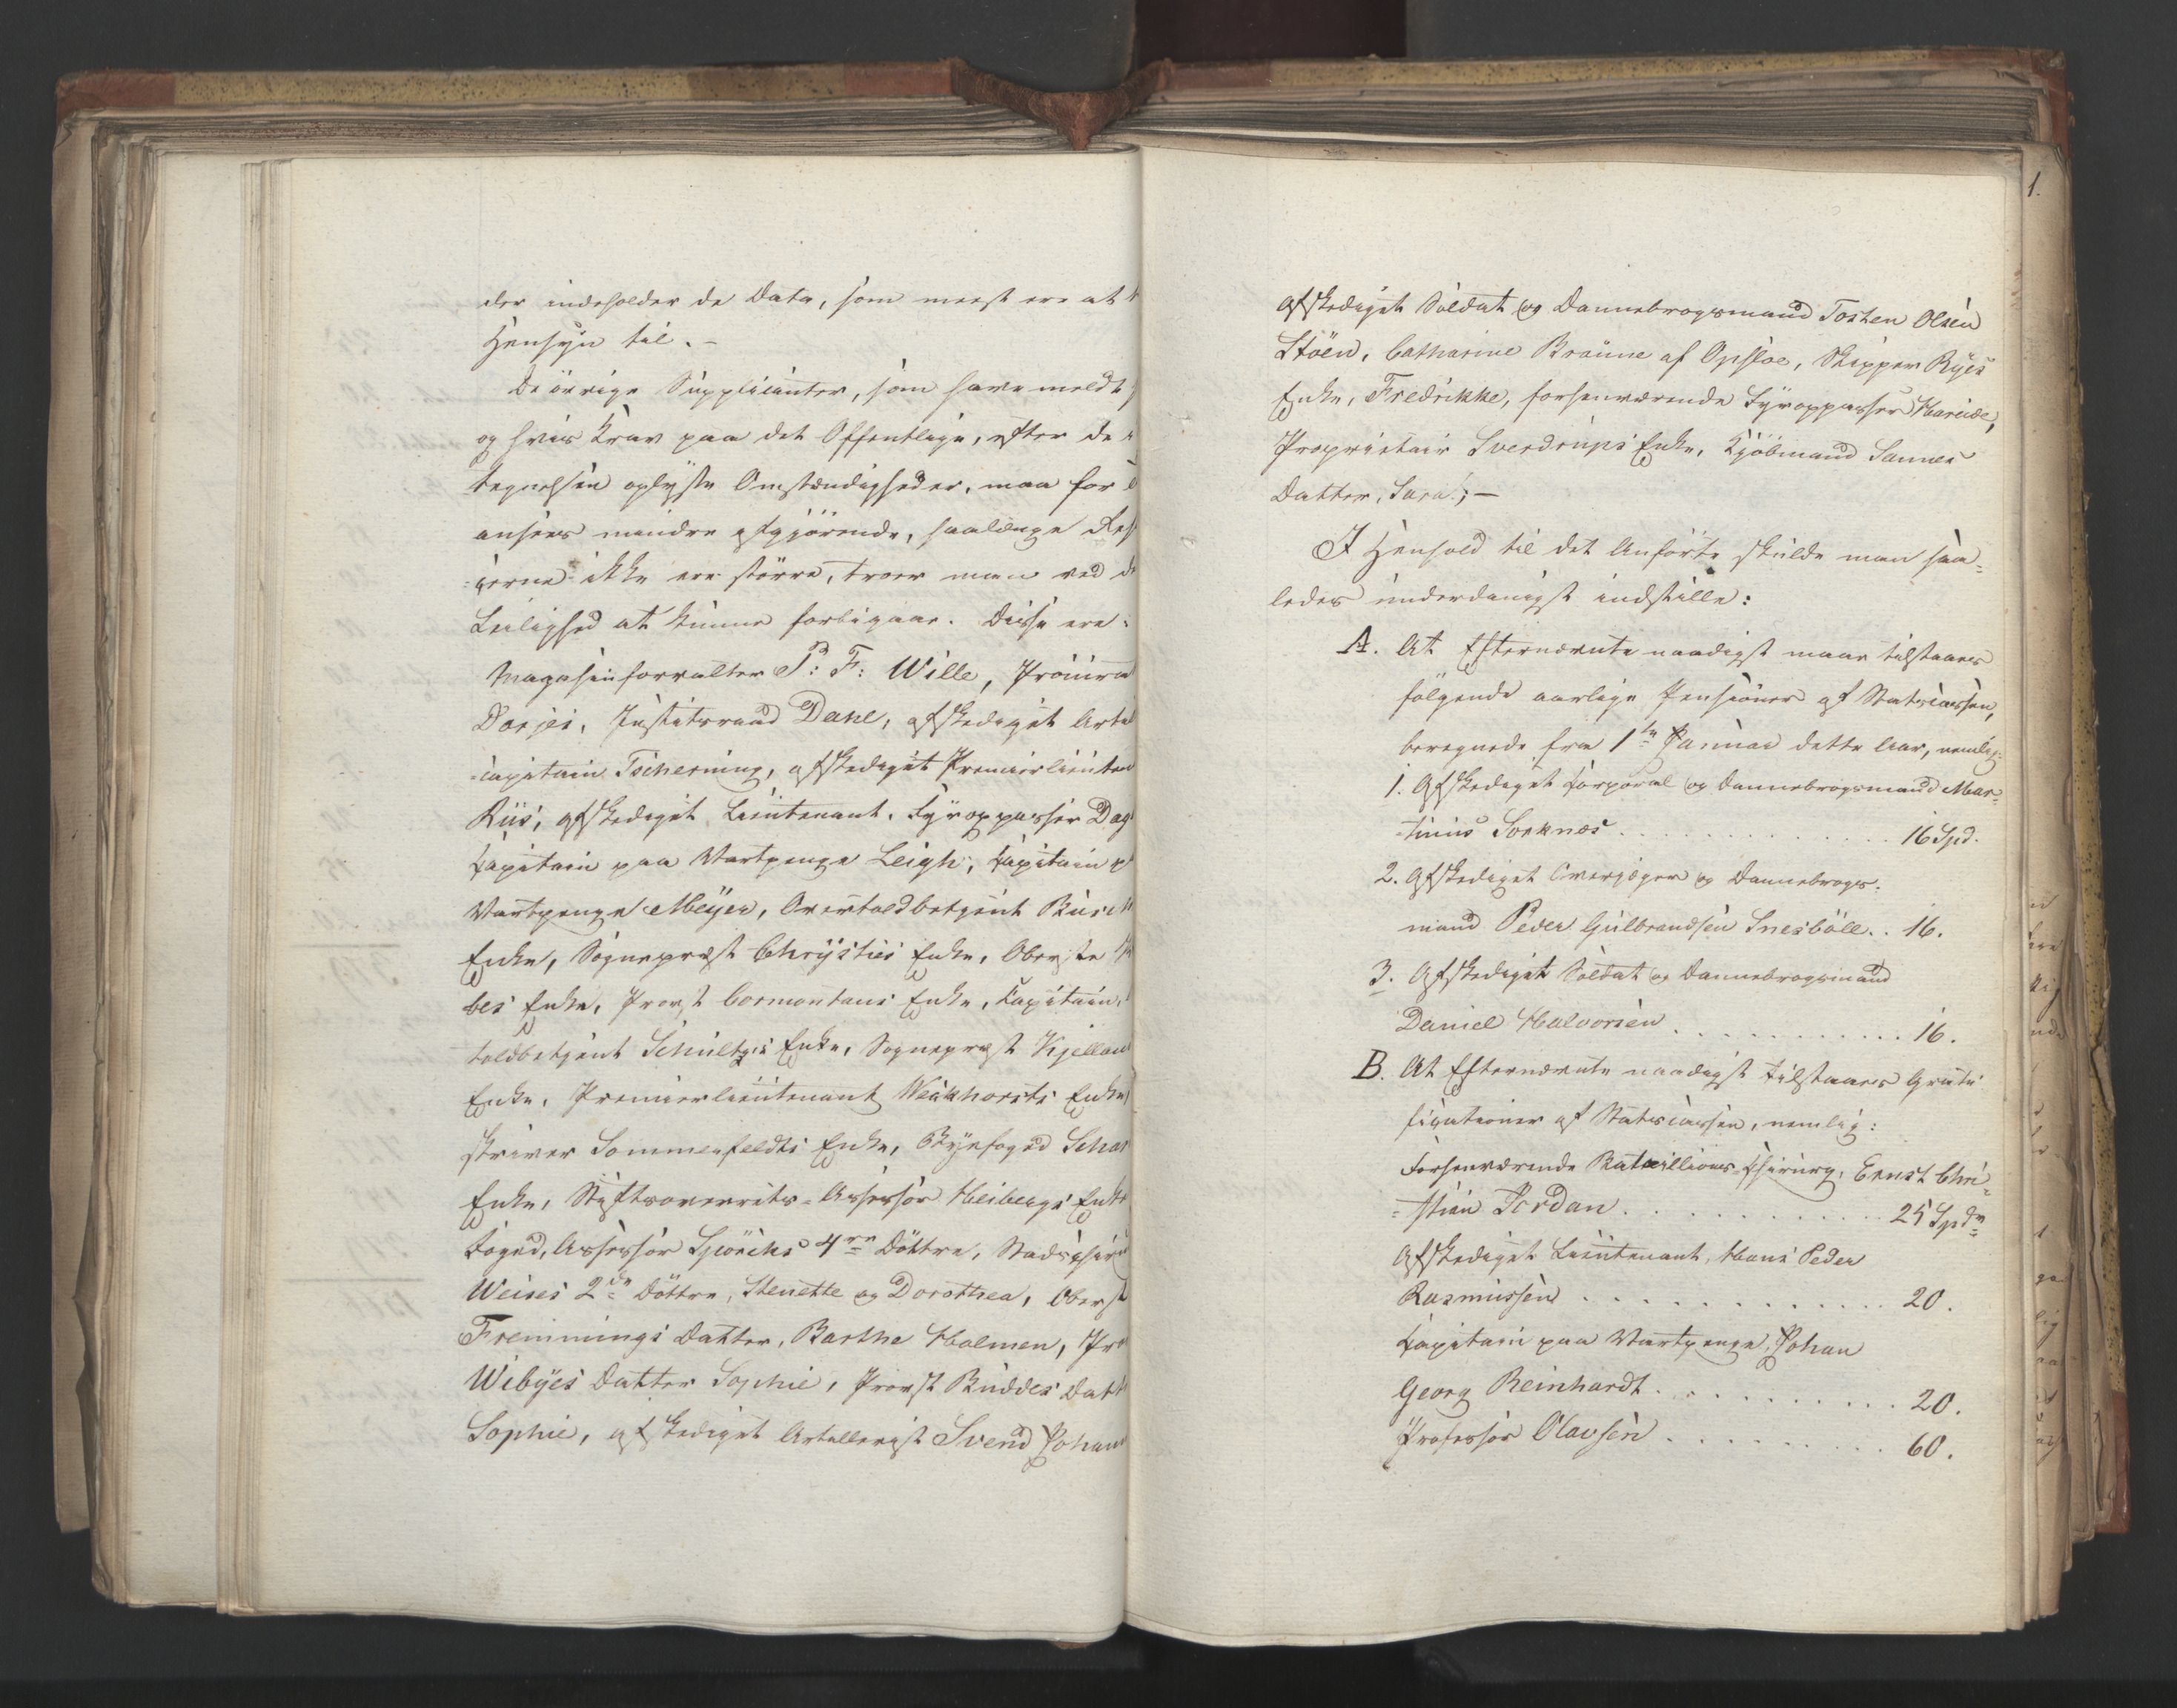 der indeholder de Data, som meest ere at
Hensyn til. -
De övrige Supplicanter, som have meldt
og hvis Krav paa det Offentlige, efter de
tegnelsen oplyste Omstændigheder, maa for
ansees mindre afgjörende, saalænge Res
=cerne ikke ere större, troer man ved
Leilighed at kunne forbigaae. Disse ere:
Magasinforvalter P: F: Wille, 
Dorjes, Justitsraad Dahl, afskediget Artil
=capitain Tscherning, afskediget Premierlieuten
Riis, afskediget Lieutenant, Fyroppasser Dag
Capitain paa Vartpenge Leigh, Capitain p
Vartpenge Meyer, Overtoldbetjent Busch
Enke, Sognepræst Chrÿsties Enke, Oberste
bes Enke, Provst Cormontans Enke, Capitain,
toldbetjent Schultzes Enke, Sognepræst Kjelland
Enke, Premierlieutenant Weickhorsts Enke,
skriver Sommerfeldts Enke, Byefoged Schar
Enke, Stiftsoverrets-Assessor Heibergs Enke
Foged, Assessor Spörcks 4re Döttre, Stadschir
Weises 2de Döttre, Stenette og Dorothea, Oberst
Fremmings Datter, Barthe Holmen, Pro
Wibÿes Datter Sophie, Provst Buddes Datt
Sophie, afskediget Artillerist Svend Johan
1.
afskediget Soldat og Dannebrogsmand Tosten Olsen
Stöen, Catharine Braüne af Opsloe, Skipper Ryes
Enke, Fredrikke, forhenværende Fyroppasser Hareide,
Proprietair Sverdrups Enke, Kjöbmand Sannes
Datter, Sara; -
I Henhold til det Anförte skulde man saa=
ledes underdanigst indstille:
A. At Efternævnte naadigst maae tilstaaes
fölgende aarlige Pensioner af Statscassen,
beregnede fra 1ste Januar dette Aar, nemlig:
1. Afskediget Corporal og Dannebrogsmand Mar=
=tinus Sorknes . . . . . . . . . . 16 Spd.
2. Afskediget Overjæger og Dannebrogs=
mand Peder Gulbrandsen Snesböll . . 16.
3. Afskediget Soldat og Dannebrogsmand
Daniel Halvorsen . . . . . . . . . . 16.
B. At Efternævnte naadigst tilstaaes Grati
ficationer af Statscassen, nemlig:
Forhenværende Bataillions-Chirurg, Ernst Chri=
=stian Jordan . . . . . . . . . . 25 Spdr
Afskediget Lieutenant, Hans Peder
Rasmussen . . . . . . . . . . 20.
Capitain paa Vartpenge, Johan
Georg Reinhardt . . . . . . . . . . 20.
Professor Olavsen . . . . . . . . . . 60.